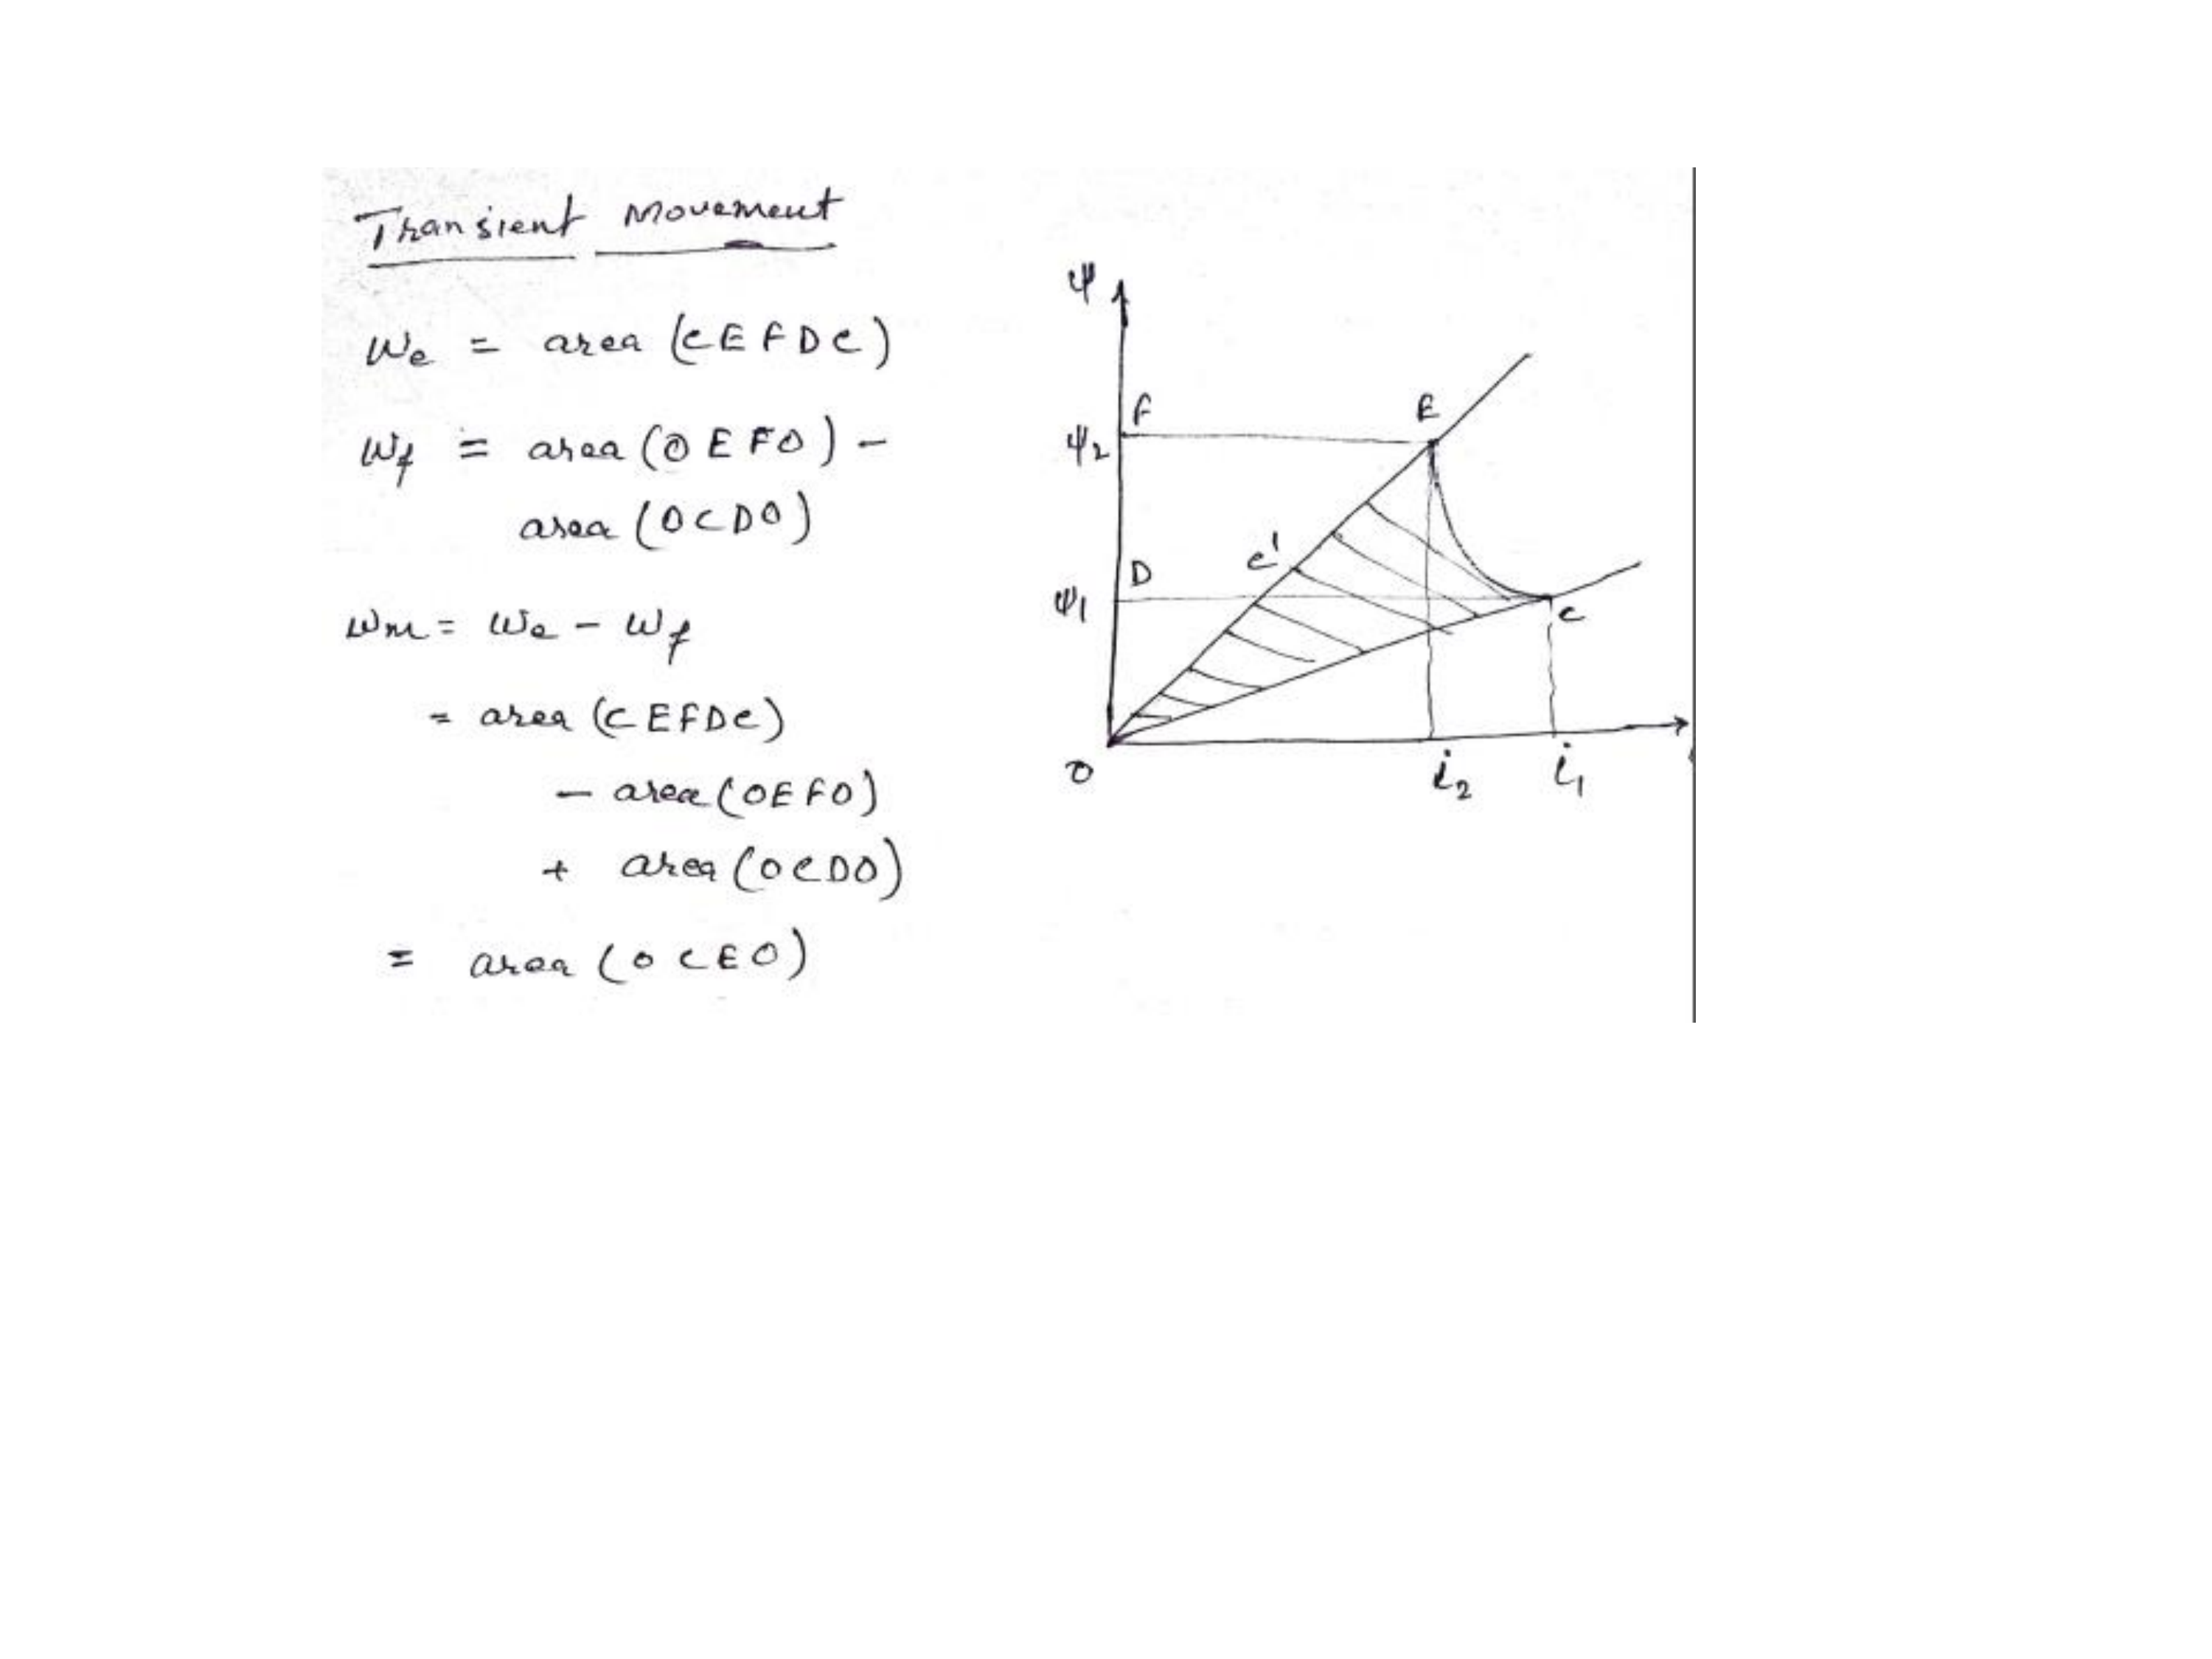 Transient Movement
We = area (CEFDC)
Wf = area (OEFO) -
area (OCDO)
Wm = We - Wf
= area (CEFDC)
- area (OEFO)
+ area (OCDO)
= area (OCEO)
ψ
F
E
ψ2
C'
D
ψ1
C
O
i2
i1